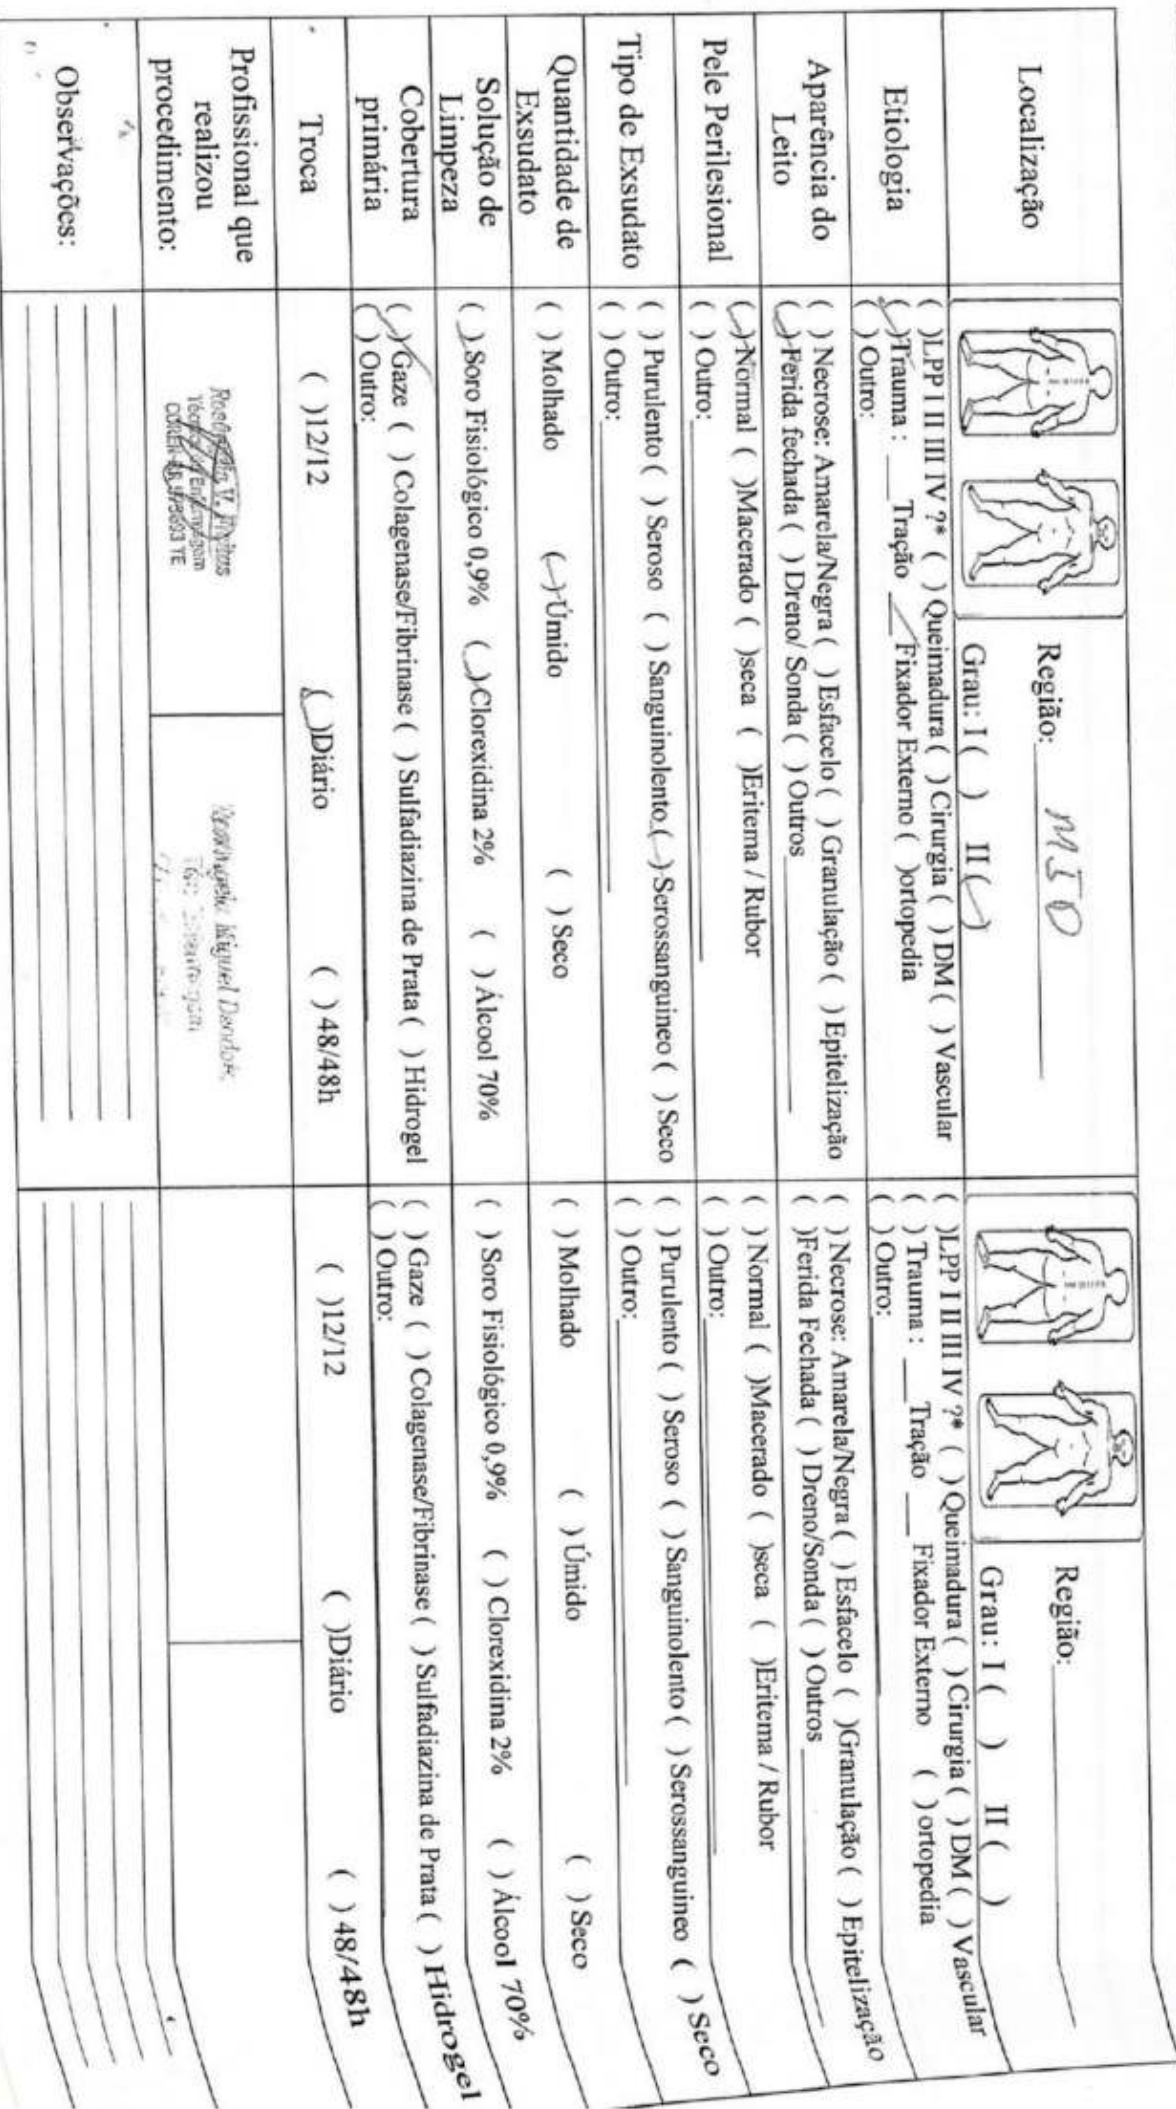 Localização
Região: MID
Grau: I ( ) II ( )
Região:
Grau: I ( ) II ( )
Etiologia
( )LPP I II III IV ?* ( ) Queimadura ( ) Cirurgia ( ) DM ( ) Vascular
( )Trauma : ___ Tração ___ Fixador Externo ( )ortopedia
( ) Outro:
( )LPP I II III IV ?* ( ) Queimadura ( ) Cirurgia ( ) DM ( ) Vascular
( ) Trauma : ___ Tração ___ Fixador Externo ( ) ortopedia
( ) Outro:
Aparência do
Leito
( ) Necrose: Amarela/Negra ( ) Esfacelo ( ) Granulação ( ) Epitelização
( )Ferida fechada ( ) Dreno/ Sonda ( ) Outros
( ) Necrose: Amarela/Negra ( ) Esfacelo ( )Granulação ( ) Epitelização
( )Ferida Fechada ( ) Dreno/Sonda ( ) Outros
Pele Perilesional
( )Normal ( )Macerado ( )seca ( )Eritema / Rubor
( ) Outro:
( ) Normal ( )Macerado ( )seca ( )Eritema / Rubor
( ) Outro:
Tipo de Exsudato
( ) Purulento ( ) Seroso ( ) Sanguinolento ( ) Serossanguineo ( ) Seco
( ) Outro:
( ) Purulento ( ) Seroso ( ) Sanguinolento ( ) Serossanguineo ( ) Seco
( ) Outro:
Quantidade de
Exsudato
( ) Molhado ( ) Úmido ( ) Seco
( ) Molhado ( ) Úmido ( ) Seco
Solução de
Limpeza
( ) Soro Fisiológico 0,9% ( ) Clorexidina 2% ( ) Álcool 70%
( ) Soro Fisiológico 0,9% ( ) Clorexidina 2% ( ) Álcool 70%
Cobertura
primária
( )Gaze ( ) Colagenase/Fibrinase ( ) Sulfadiazina de Prata ( ) Hidrogel
( ) Outro:
( ) Gaze ( ) Colagenase/Fibrinase ( ) Sulfadiazina de Prata ( ) Hidrogel
( ) Outro:
Troca
( )12/12 ( )Diário ( ) 48/48h
( )12/12 ( )Diário ( ) 48/48h
Profissional que
realizou
procedimento:
V.
Enfermagem
COREN TE
Miguel
Observações: